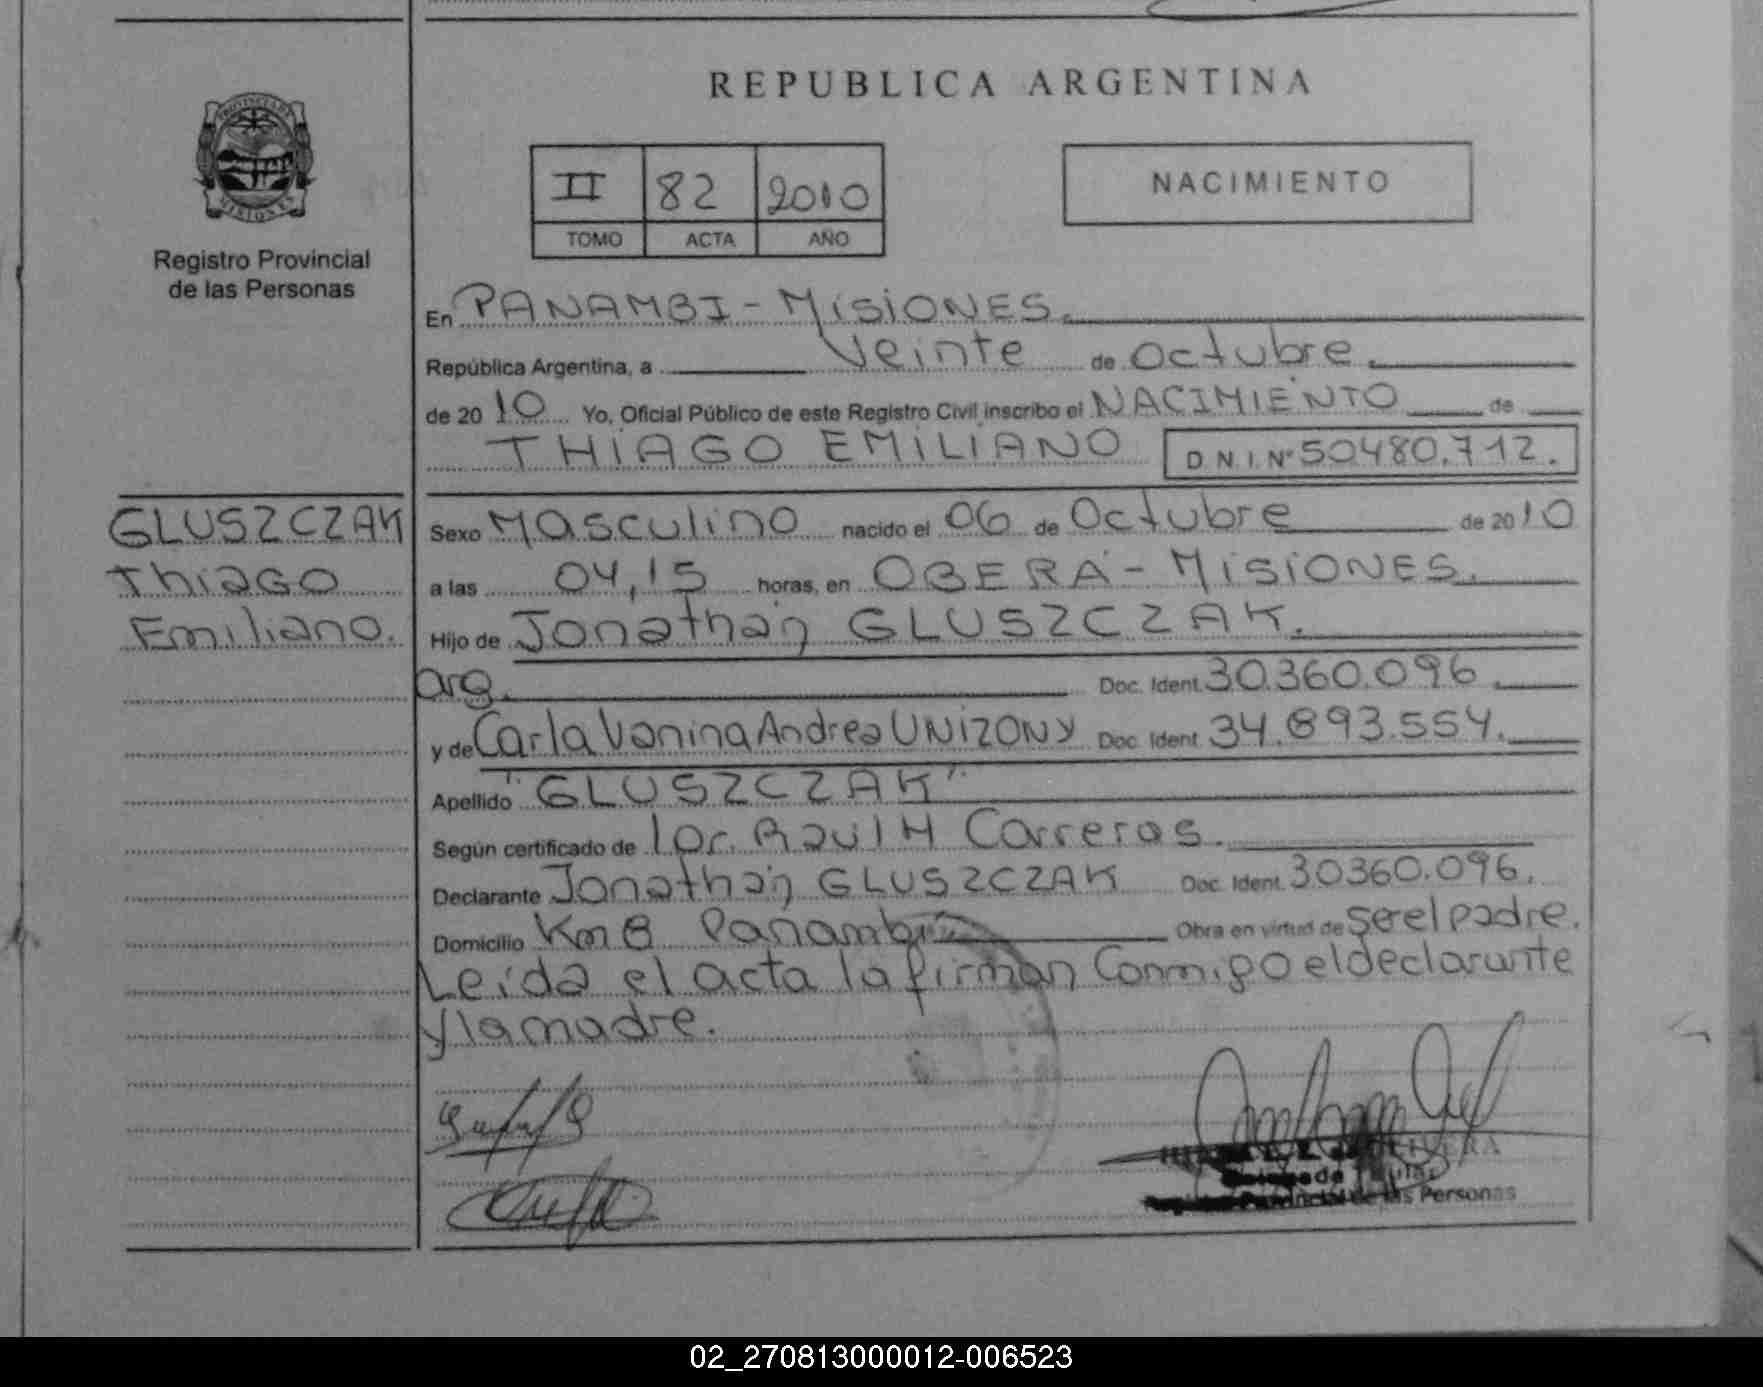 REPUBLICA ARGENTINA
PROVINCIA DE
MISIONES
Registro Provincial
de las Personas
II 82 2010
TOMO ACTA AÑO
NACIMIENTO
En PANAMBI - MISIONES.
República Argentina, a Veinte de Octubre.
de 2010 Yo, Oficial Público de este Registro Civil inscribo el NACIMIENTO de
THIAGO EMILIANO D.N.I. N° 50480.712.
GLUSZCZAK
Thiago
Emiliano.
Sexo Masculino nacido el 06 de Octubre de 2010
a las 04,15 horas, en OBERÁ - MISIONES.
Hijo de Jonathan GLUSZCZAK.
arg. Doc. Ident. 30.360.096.
y de Carla Vanina Andrea UNIZONY Doc. Ident. 34.893.554.
Apellido "GLUSZCZAK"
Según certificado de Raul H Carreras.
Declarante Jonathan GLUSZCZAK Doc. Ident. 30360.096.
Domicilio Km 8 Panambí Obra en virtud de ser el padre.
Leída el acta la firman Conmigo el declarante
y la madre.
Provincial de las Personas
02_270813000012-006523